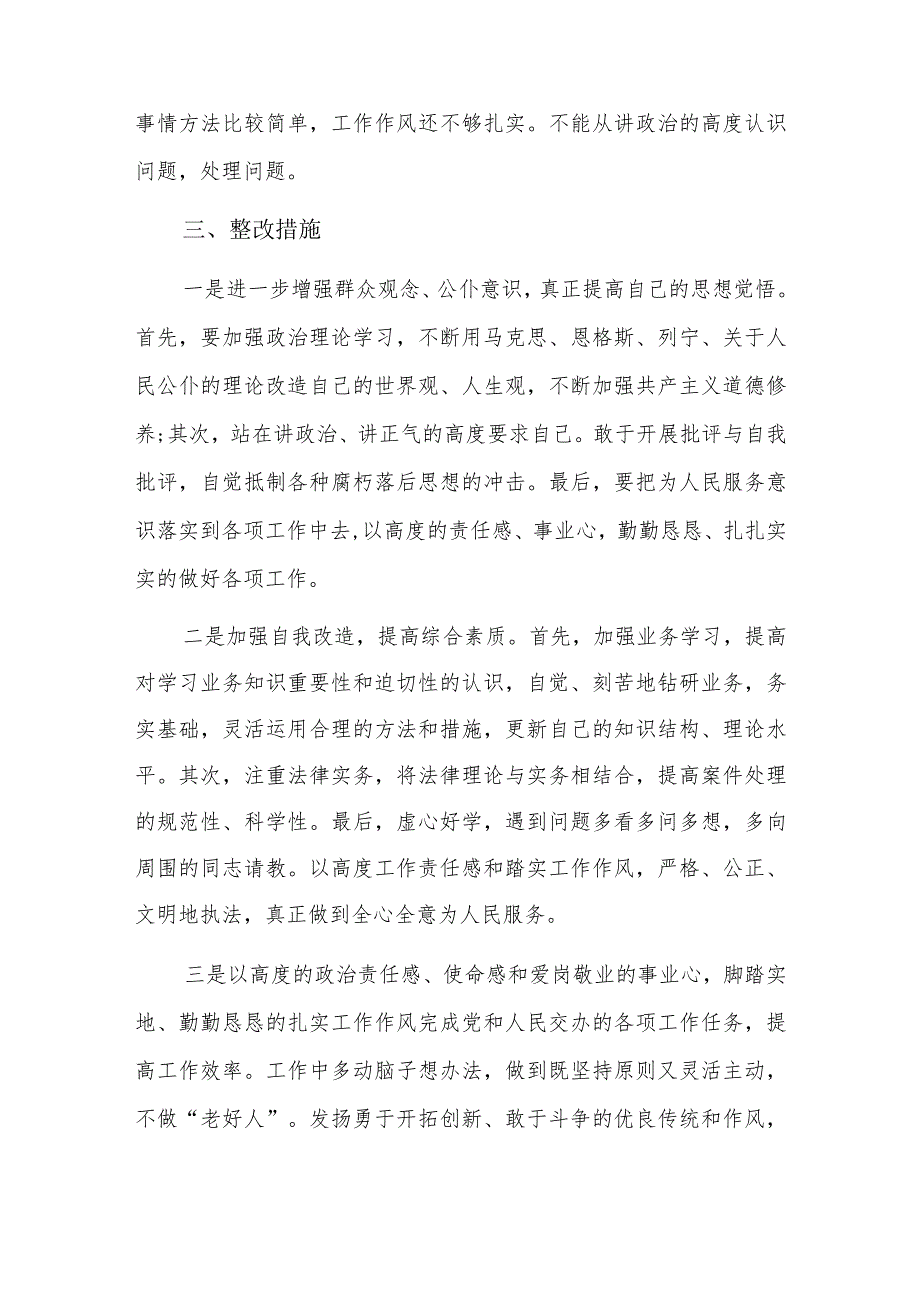 事情方法比较简单，工作作风还不够扎实。不能从讲政治的高度认识
问题，处理问题。
三、整改措施
一是进一步增强群众观念、公仆意识，真正提高自己的思想觉悟。
首先，要加强政治理论学习，不断用马克思、恩格斯、列宁、关于人
民公仆的理论改造自己的世界观、人生观，不断加强共产主义道德修
养;其次，站在讲政治、讲正气的高度要求自己。敢于开展批评与自我
批评，自觉抵制各种腐朽落后思想的冲击。最后，要把为人民服务意
识落实到各项工作中去,以高度的责任感、事业心，勤勤恳恳、扎扎实
实的做好各项工作。
二是加强自我改造，提高综合素质。首先，加强业务学习，提高
对学习业务知识重要性和迫切性的认识，自觉、刻苦地钻研业务，务
实基础，灵活运用合理的方法和措施，更新自己的知识结构、理论水
平。其次，注重法律实务，将法律理论与实务相结合，提高案件处理
的规范性、科学性。最后，虚心好学，遇到问题多看多问多想，多向
周围的同志请教。以高度工作责任感和踏实工作作风，严格、公正、
文明地执法，真正做到全心全意为人民服务。
三是以高度的政治责任感、使命感和爱岗敬业的事业心，脚踏实
地、勤勤恳恳的扎实工作作风完成党和人民交办的各项工作任务，提
高工作效率。工作中多动脑子想办法，做到既坚持原则又灵活主动，
不做“老好人”。发扬勇于开拓创新、敢于斗争的优良传统和作风，